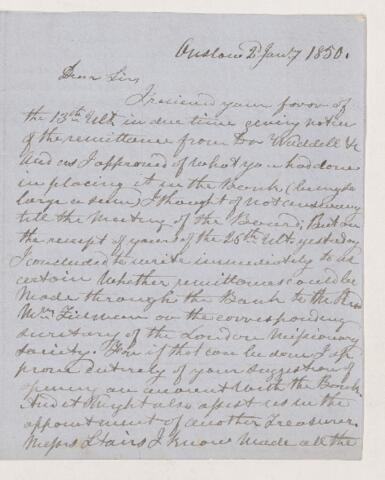 Onslow 2d Jany 1850.
Dear Sir,
I received your favor of
the 13th Ult. in due time giving notice
of the remittance from Waddell &c
And as I approved of what you had done
in placing it in the Bank (being so
large a sum) I thought of not answering
till the Meeting of the Board; But on
the receipt of yours of the 26th Ult. yesterday
I concluded to write immediately to as
certain whether remittances could be
Made through the Bank to the Revd
Mr. or the corresponding
secretary of the London Missionary
Society. For if that can be done I ap
prove entirely of your suggestion of
opening an account with the Bank.
And it Might also assist us in the
appointment of another Treasurer.
Messrs Stairs I know Made all the